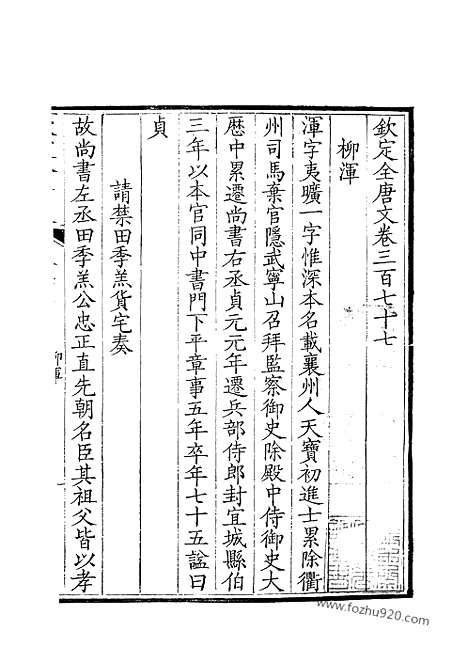 欽定全唐文卷三百七十七
柳渾
渾字夷曠一字惟深本名載襄州人天寶初進士累除衢
州司馬棄官隱武寧山召拜監察御史除殿中侍御史大
歷中累遷尚書右丞貞元元年遷兵部侍郎封宜城縣伯
三年以本官同中書門下平章事五年卒年七十五諡曰
貞
請禁田季羔貨宅奏
故尚書左丞田季羔公忠正直先朝名臣其祖父皆以孝
柳渾
一
www.fozhu920.com